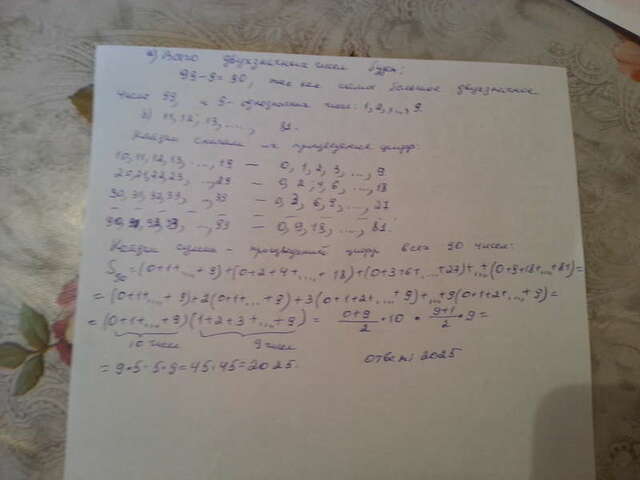 а) Всего двухзначных чисел будет:
99-9=90, так как самое большое двухзначное
число 99, и 9- однозначных чисел: 1,2,...,9.
11, 12, 13, ...,
Найдем сначала произведение цифр:
10,11,12,13, ..., 19 — 0, 1, 2, 3, ..., 9
20,21,22,23, ..., 29 — 0, 2, 4, 6, ..., 18
30,31,32,33, ..., 39 — 0, 3, 6, 9, ..., 27
90, 91, 92, 93, ..., 99 — 0, 9, 18, ..., 81.
Найдем сумму произведений цифр всех 90 чисел:
S90=(0+1+...+9)+(0+2+4+...+18)+(0+3+6+...+27)+...+(0+9+18+...+81)=
=(0+1+...+9)+2(0+1+...+9)+3(0+1+2+...+9)+...+9(0+1+2+...+9)=
=(0+1+...+9)(1+2+3+...+9)= (0+9)/2 • 10 • (9+1)/2 • 9=
10 чисел 9 чисел
=9•5•5•9=45•45=2025. Ответ: 2025